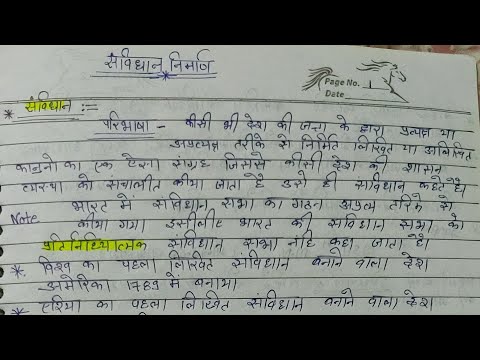 संविधान निर्माण
Page No. 1
Date
* संविधान :=
परिभाषा - कीसी भी देश की जनता के द्वारा प्रत्यक्ष या
अप्रत्यक्ष तरीके से निर्मित लिखित या अलिखित
कानूनो का एक ऐसा संग्रह जिससे कीसी देश की शासन
व्यवस्था को संचालीत कीया जाता है उसे ही संविधान कहते है।
Note भारत में संविधान सभा का गठन अप्रत्यक्ष तरिके से
कीया गया इसीलीए भारत की संविधान सभा को
प्रतिनिध्यात्मक संविधान सभा नहि कहा जाता है।
* विश्व का पहला लिखित संविधान बनाने वाला देश
अमेरिका 1789 में बनाया
* एशिया का पहला लिखित संविधान बनाने वाला देश